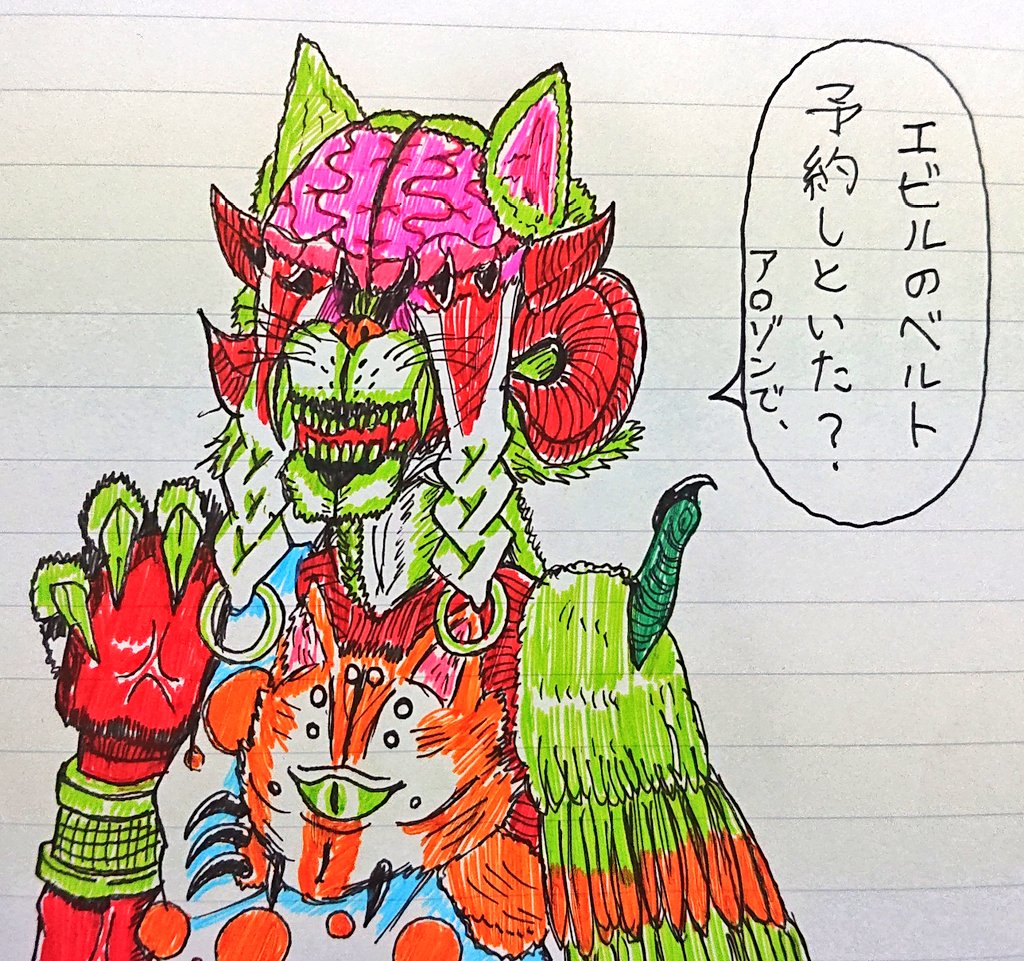 エビルのベルト
予約しといた?
アロゾンで、